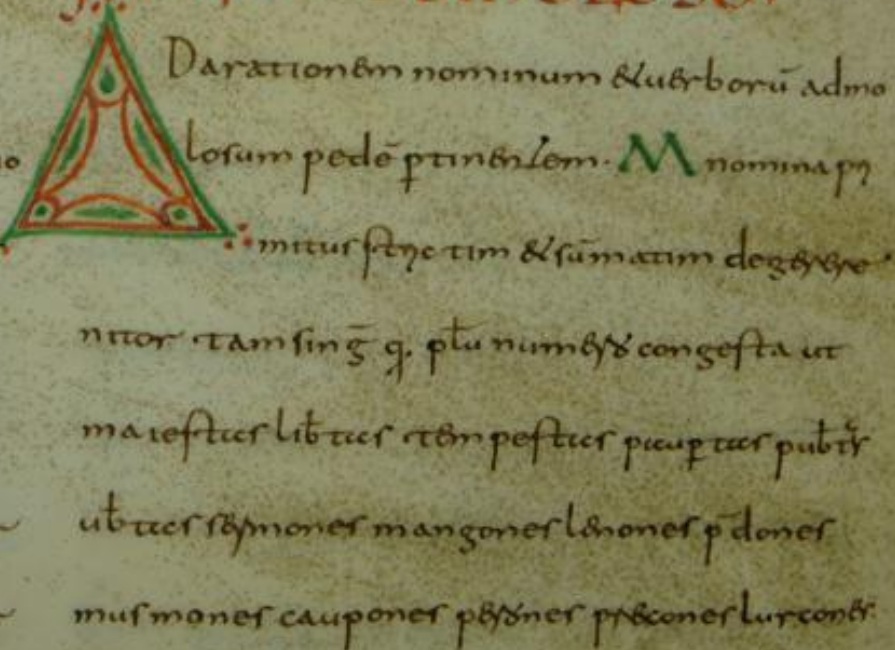 A Da rationem nominum & uerborū ad mo
losum pedē ꝑtinentem. M nomina
& sūmatim degenere
nitor tam sinḡ q. plu numero congesta ut
maiestas libtas tempestas pauꝑtas pub
ubtas sermones mangones lenones p̄dones
musmones caupones persones precones lurcones